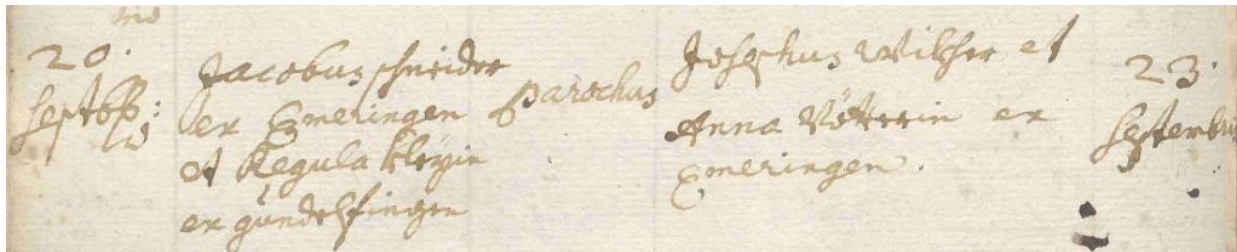 20.
Septbr:
Jacobus Schneider
ex Emeringen
et Regula Kleyin
ex gundelfingen
Parochus
Josephus Wilher et
Anna Vötterin ex
Emeringen.
23.
Septembris